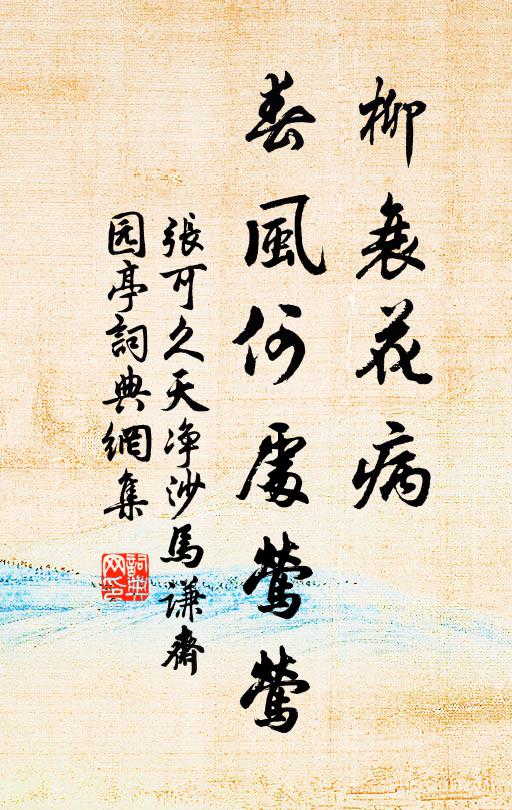 柳衰花病
春風何處鶯鶯
張可久天净沙馬谦齋
园亭詞典網集
詞典